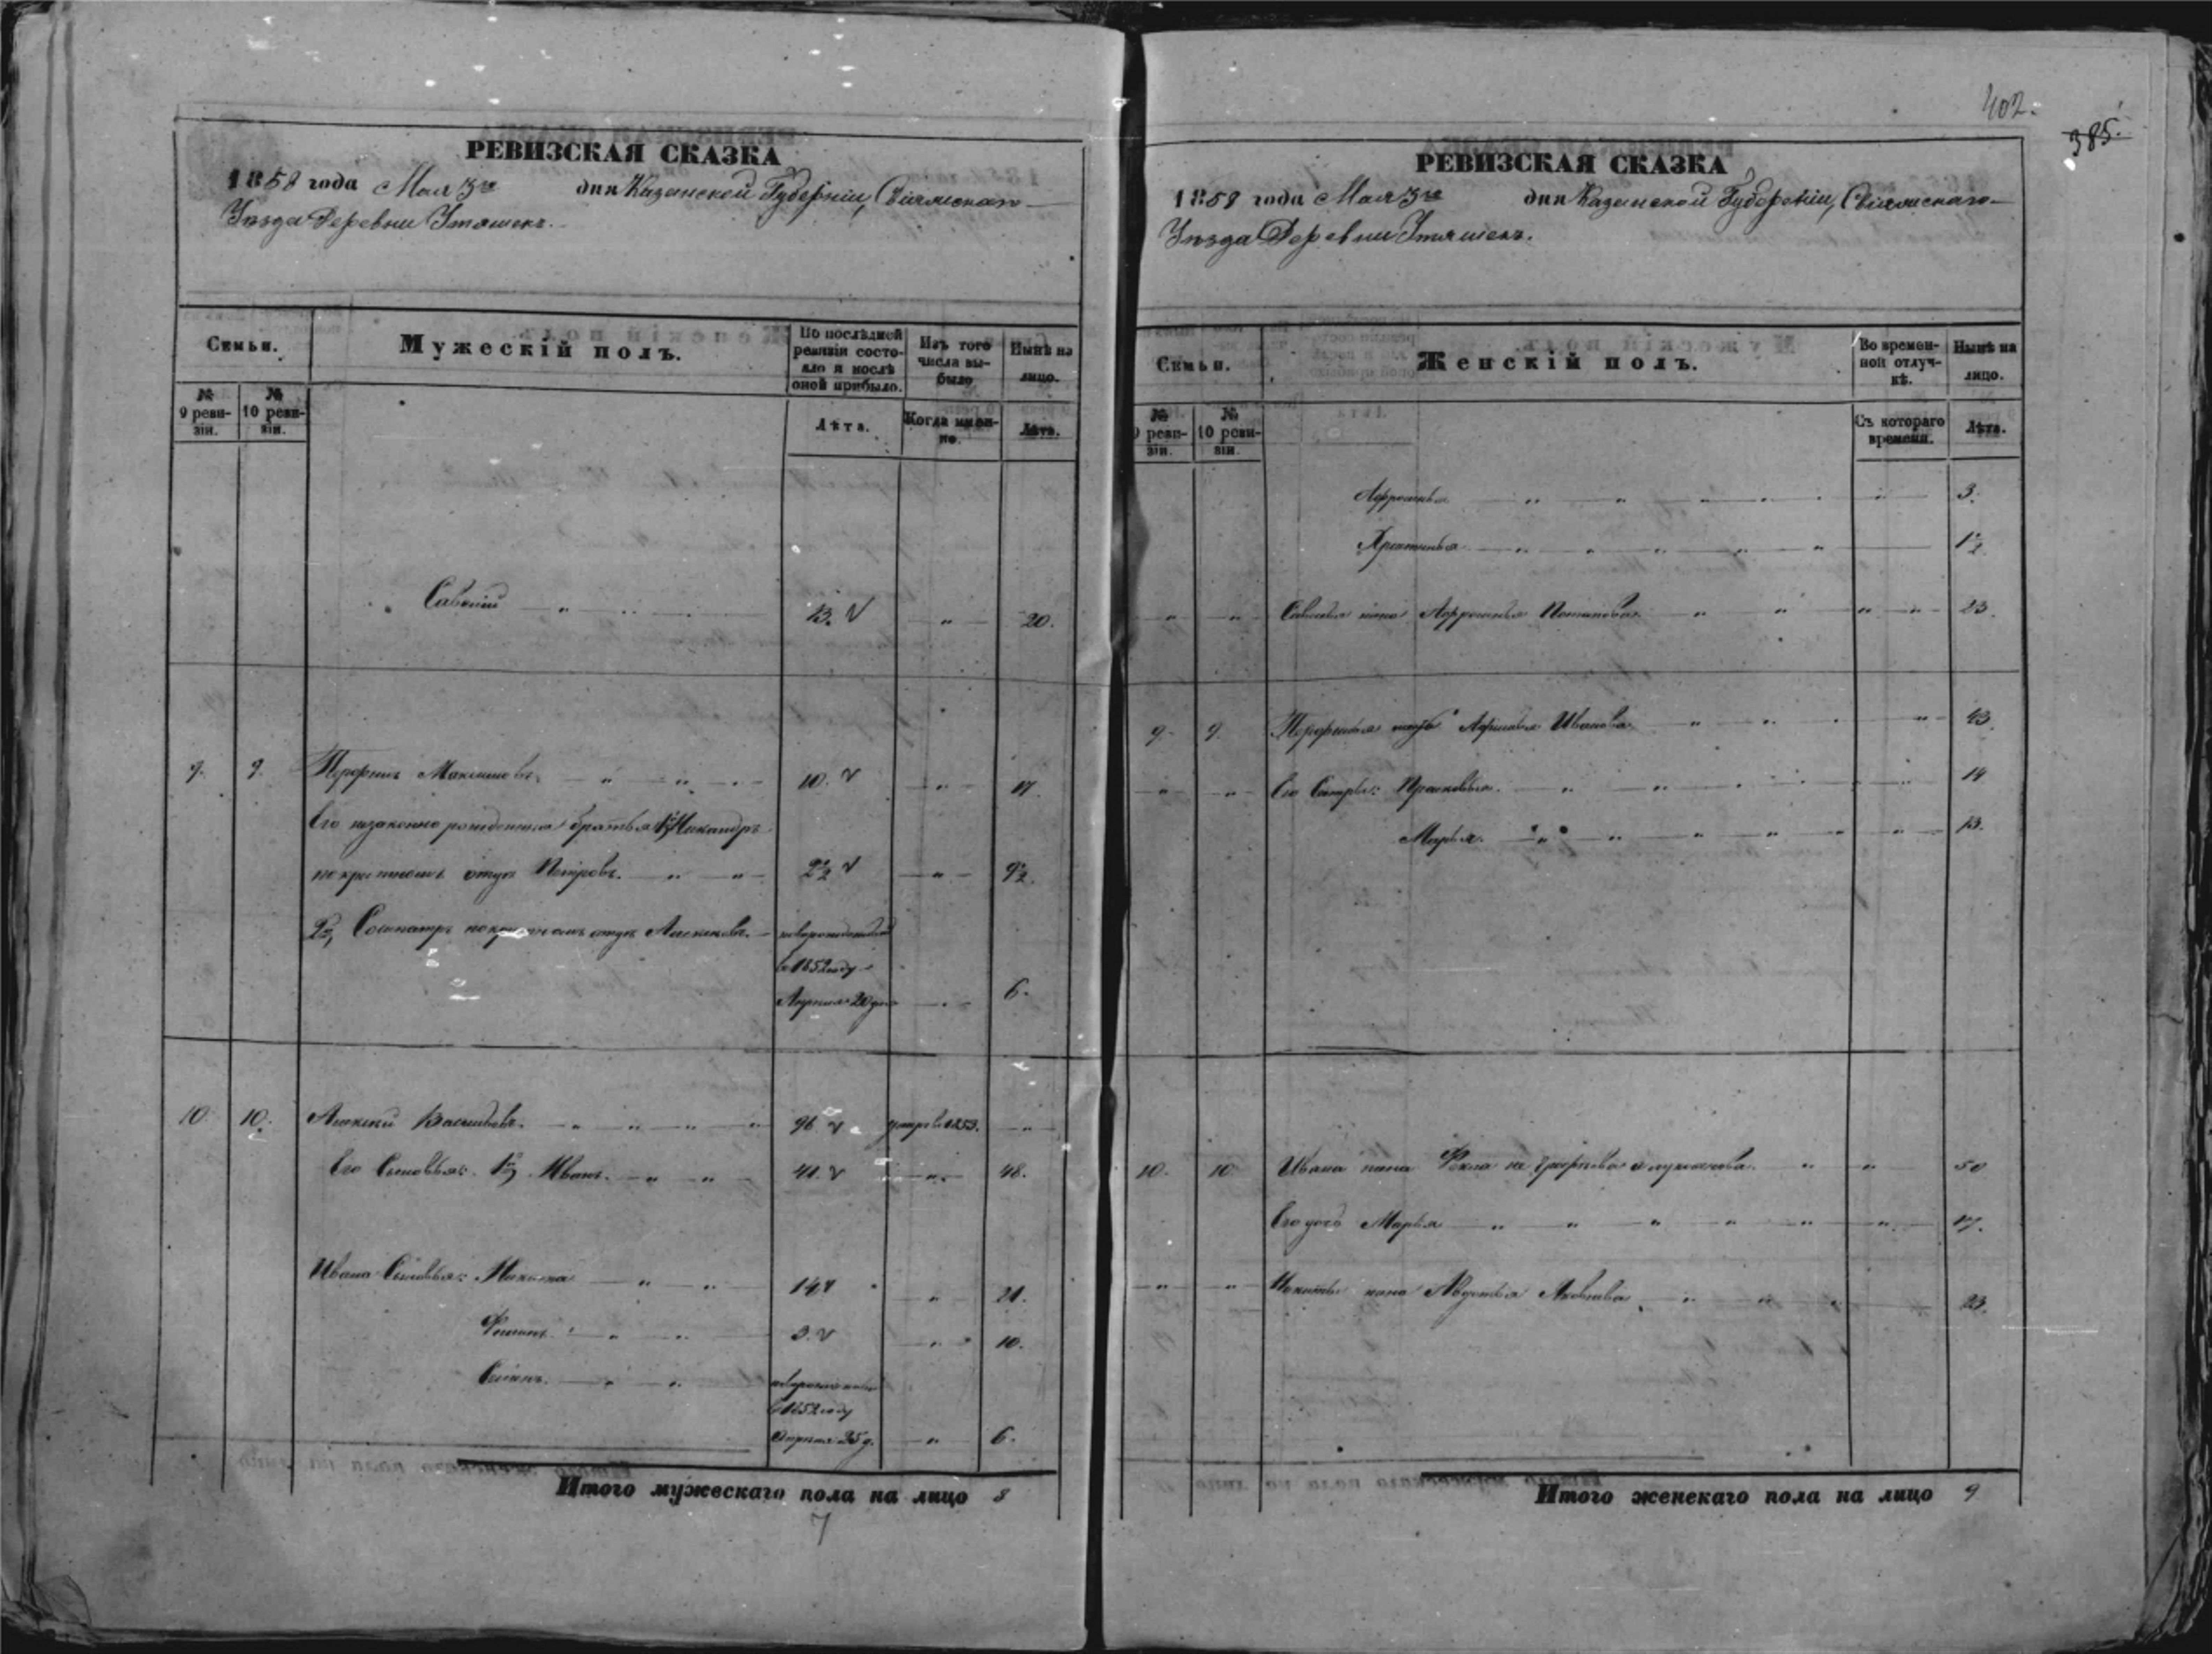 402.
385.
РЕВИЗСКАЯ СКАЗКА
1858 года Мая 3го дня Казанской Губерніи, Свіяжскаго
Уѣзда Деревни Утяшекъ.
Семьи.
Мужескій полъ.
По послѣдней ревизіи состояло и послѣ оной прибыло.
Изъ того числа выбыло
Нынѣ на лицо.
№ 9 ревизіи.
№ 10 ревизіи.
Лѣта.
Когда именно.
Лѣта.
Савелій 13. 20.
9. 9. Порфирій Максимовъ 10. 17.
Его незаконно рожденныя братья 1й Никандръ
по крестномъ отцѣ Петровъ. 2½ 9½.
2й, Сосипатръ по крестномъ отцѣ Алексѣевъ. новорожденный
въ 1852 году
Апрѣля 20 дня 6.
10. 10. Алексѣй Васильевъ. 96 умре въ 1853.
Его Сыновья: 1й Иванъ. 41. 48.
Ивана Сыновья: Никита 14 21.
3. 10.
въ 1852 году
Апрѣля 25 д. 6.
Итого мужескаго пола на лицо 8
7
РЕВИЗСКАЯ СКАЗКА
1858 года Мая 3го дня Казанской Губерніи, Свіяжскаго
Уѣзда Деревни Утяшекъ.
Семьи.
Женскій полъ.
Во временной отлучкѣ.
Нынѣ на лицо.
№ 9 ревизіи.
№ 10 ревизіи.
Съ котораго времени.
Лѣта.
Афросинья 3.
Христинья 1½
Савелья жена Афросинья Потапова 23.
9. 9. Порфирія мать Афимья Иванова 43.
Его Сестры: Прасковья. 14
Марья. 13.
10. 10. Ивана жена Фекла 50
Его дочь Марья 17.
Никиты жена Авдотья Яковлева 23.
Итого женскаго пола на лицо 9